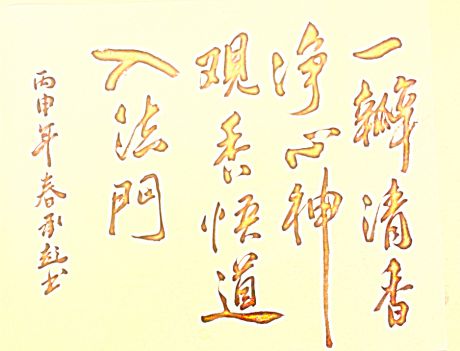 一瓣清香
净心神
观香悟道
入法門
丙申年春承彪书